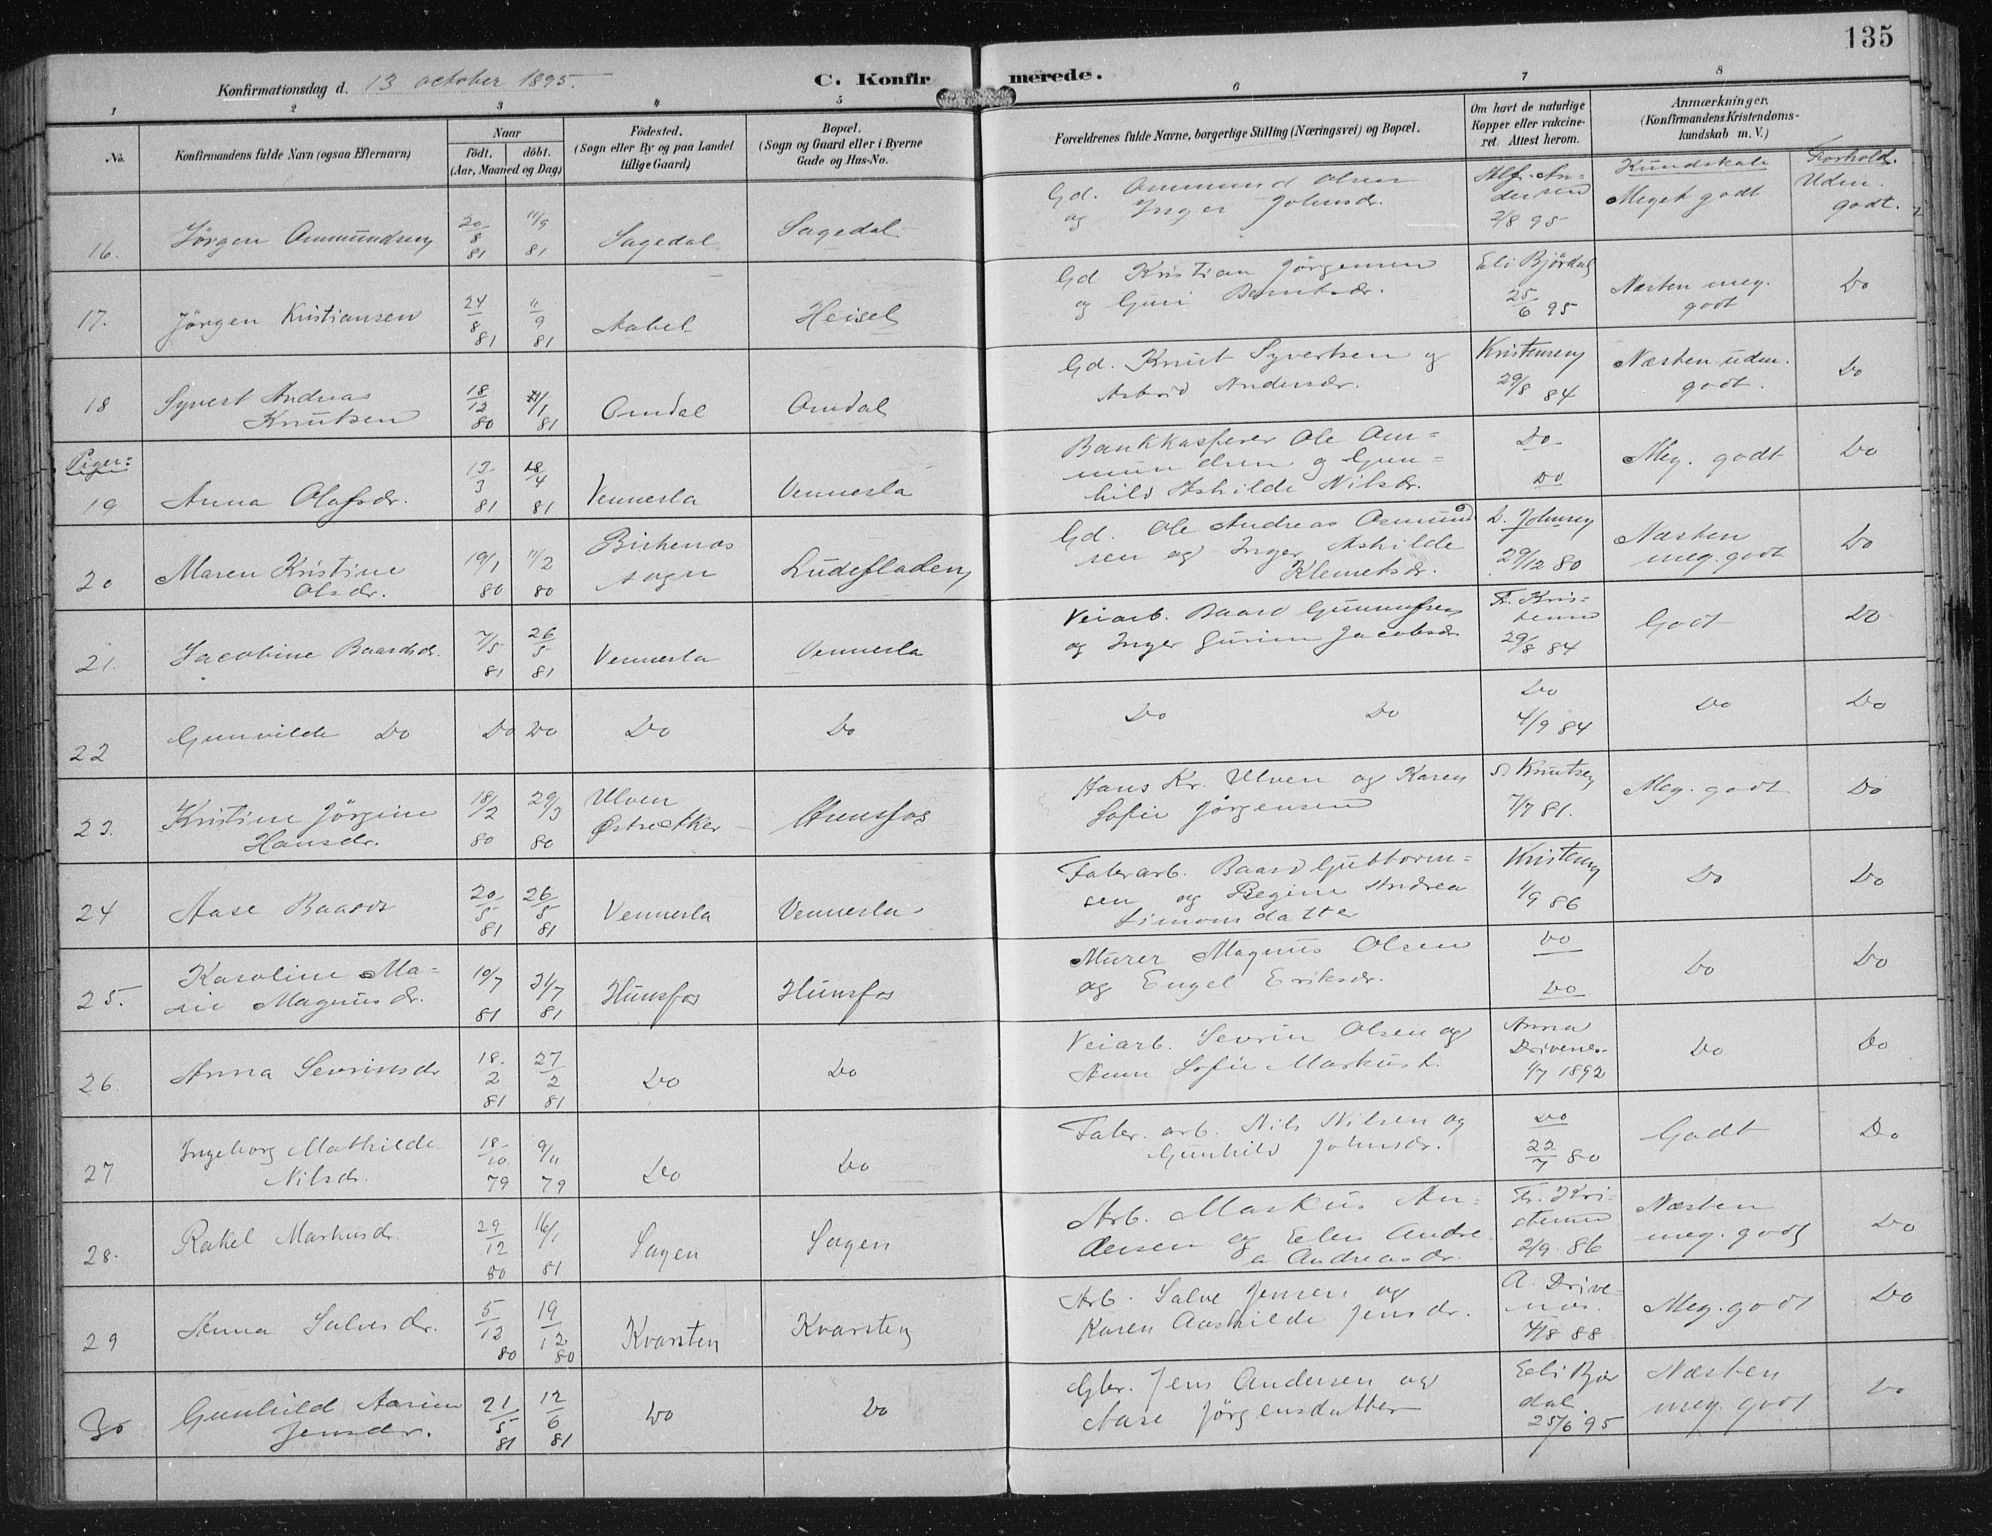 135
Konfirmationsdag d. 13 october 1895.
C. Konfirmerede.
1 2 3 4 5 6 7 8
No.
Konfirmandens fulde Navn (ogsaa Efternavn)
Naar
födt. döbt.
(Aar, Maaned og Dag)
Födested.
(Sogn eller By og paa Landet
tillige Gaard)
Bopæl.
(Sogn og Gaard eller i Byerne
Gade og Hus-No.
Forældrenes fulde Navne, borgerlige Stilling (Næringsvei) og Bopæl.
Om havt de naturlige
Kopper eller vakcine-
ret. Attest herom.
Anmærkninger.
(Konfirmandens Kristendoms-
kundskab m. V.)
Kundskab Forhold.
16. Jørgen Ommundsen 20/8 81 11/9 81 Sagedal Sagedal Gd. Ommund Olsen
og Inger Johnsdr. Alf. An-
dersen
2/8 95 Meget godt Uden.
godt.
17. Jørgen Kristiansen 24/8 81 11/9 81 Aabel Heisel Gd Kristian Jørgensen
og Guri Berntsdr. Eli Bjørdal
25/6 95 Næsten meg.
godt Do
18 Syvert Andreas
Knutsen 18/12 80 /1 81 Omdal Omdal Gd. Knut Syvertsen og
Astrid Andersdr. Kristensen
29/8 84 Næsten uden.
godt. Do
Piger:
19 Anna Olafsdr. 13/3 81 18/4 81 Vennesla Vennesla Bankkasserer Ole Om=
mundsen og Gun=
hild Ashilde Nilsdr. Do
Do Meg. godt Do
20 Maren Kristine
Olsdr. 19/1 80 11/2 80 Birkenes
sogn Ludefladen Gd. Ole Andreas Osmund
sen og Inger Ashilde
Klemetsdr. D. Johnsen
29/12 80 Næsten
meg. godt Do
21. Jacobine Baardsdr. 7/5 81 26/5 81 Vennesla Vennesla Veiarb. Baard Gunnufsen
og Inger Gurine Jacobsdr Fr. Kris=
tensen
29/8 84 Godt Do
22 Gunvilde Do Do Do Do Do Do Do Do
4/9 84 Do Do
23. Kristine Jørgine
Hansdr. 18/2 80 29/3 80 Ulven
Østre Aker Hunsfos Hans Kr. Ulven og Karen
Sofie Jørgensen S. Knutsen
7/7 81. Meg. godt Do
24 Aase Baards 20/5 81 26/5 81 Vennesla Vennesla Faberarb. Baard Guttorm=
sen og Regine Andrea
Simonsdatter Kristensen
1/9 86 Do Do
25. Karoline Ma=
rie Magnusdr. 10/7 81 31/7 81 Hunsfos Hunsfos Murer Magnus Olsen
og Engel Eriksdr. Do
Do Do Do
26. Anna Sevrinsdr 18/2 81 27/2 81 Do Do Veiarb. Sevrin Olsen og
Anne Sofie Markusd. Anna
Drivenes
1/7 1892 Do Do
27 Ingeborg Mathilde
Nilsdr. 18/10 79 9/11 79 Do Do Faber. arb. Nils Nilsen og
Gunhild Johnsdr. Do
22/7 80 Godt Do
28. Rakel Markusdr. 29/12 80 16/1 81 Sagen Sagen Arb. Markus An-
dersen og Elen Andre
a Andreasdr. Fr. Kri-
stensen
2/9. 86 Næsten
meg. godt Do
29 Anna Salvesdr. 5/12 80 19/12 80 Kvarsten Kvarsten Arb. Salve Jensen og
Karen Aashilde Jensdr. A. Drive-
nes.
4/8 88 Meg. godt Do
30 Gunhild Aasine
Jensdr. 21/5 81 12/6 81 Do Do Gbr. Jens Andersen og
Aase Jørgensdatter Eli Bjør
dal.
25/6 95 Næsten
meg. godt Do